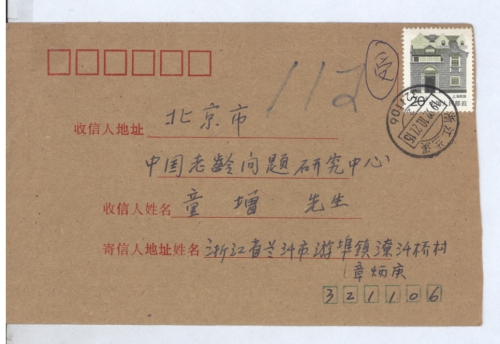 112 受
收信人地址 北京市
中国老龄问题研究中心
收信人姓名 童增 先生
寄信人地址姓名 浙江省兰溪市游埠镇潦溪桥村
章炳庚
321106
20
浙江 兰溪
321106